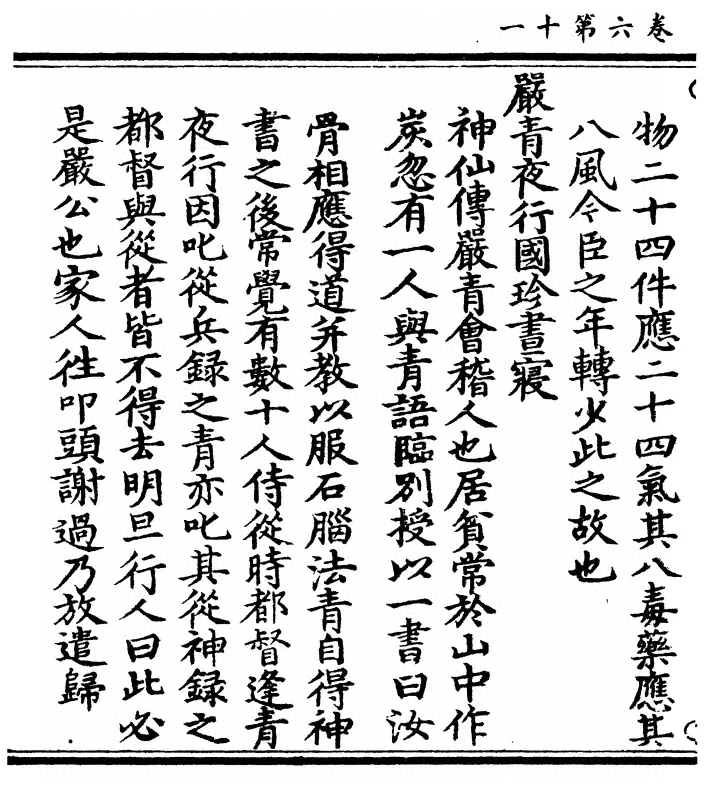 卷六第十一
物二十四件應二十四氣其八毒藥應其
八風令臣之年轉少此之故也
嚴青夜行國珍晝寢
神仙傳嚴青會稽人也居貧常於山中作
炭忽有一人與青語臨別授以一書曰汝
骨相應得道并教以服石腦法青自得神
書之後常覺有數十人侍從時都督逢青
夜行因叱從兵録之青亦叱其從神録之
都督與從者皆不得去明旦行人曰此必
是嚴公也家人徃叩頭謝過乃放遣歸